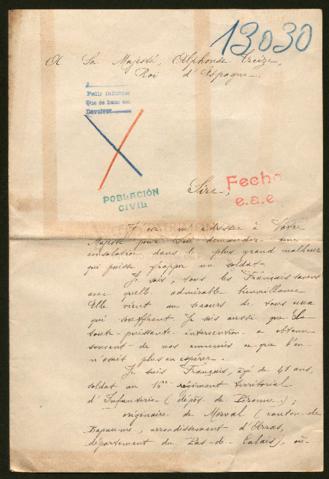 13030
A Sa Majesté, Alphonse Treize,
Roi d'Espagne.
Pedir informe
Que se haga en
POBLACIÓN
CIVIL
Fecha
e.a.e.
Sire,
J'ose m'adresser à Votre
Majesté pour Lui demander une
consolation dans le plus grand malheur
qui puisse frapper un soldat.
Je sais, tous les Français savent
avec quelle admirable bienveillance
Elle vient au secours de tous ceux
qui souffrent. Je sais aussi que Sa
toute-puissante intervention a obtenu
souvent de nos ennemis ce que l'on
n'avait plus espérer.
Je suis Français, âgé de 41 ans,
soldat au 16e régiment territorial
d'Infanterie (dépôt de
originaire de Morval (canton de
Bapaume, arrondissement d'Arras,
département du Pas-de-Calais), où